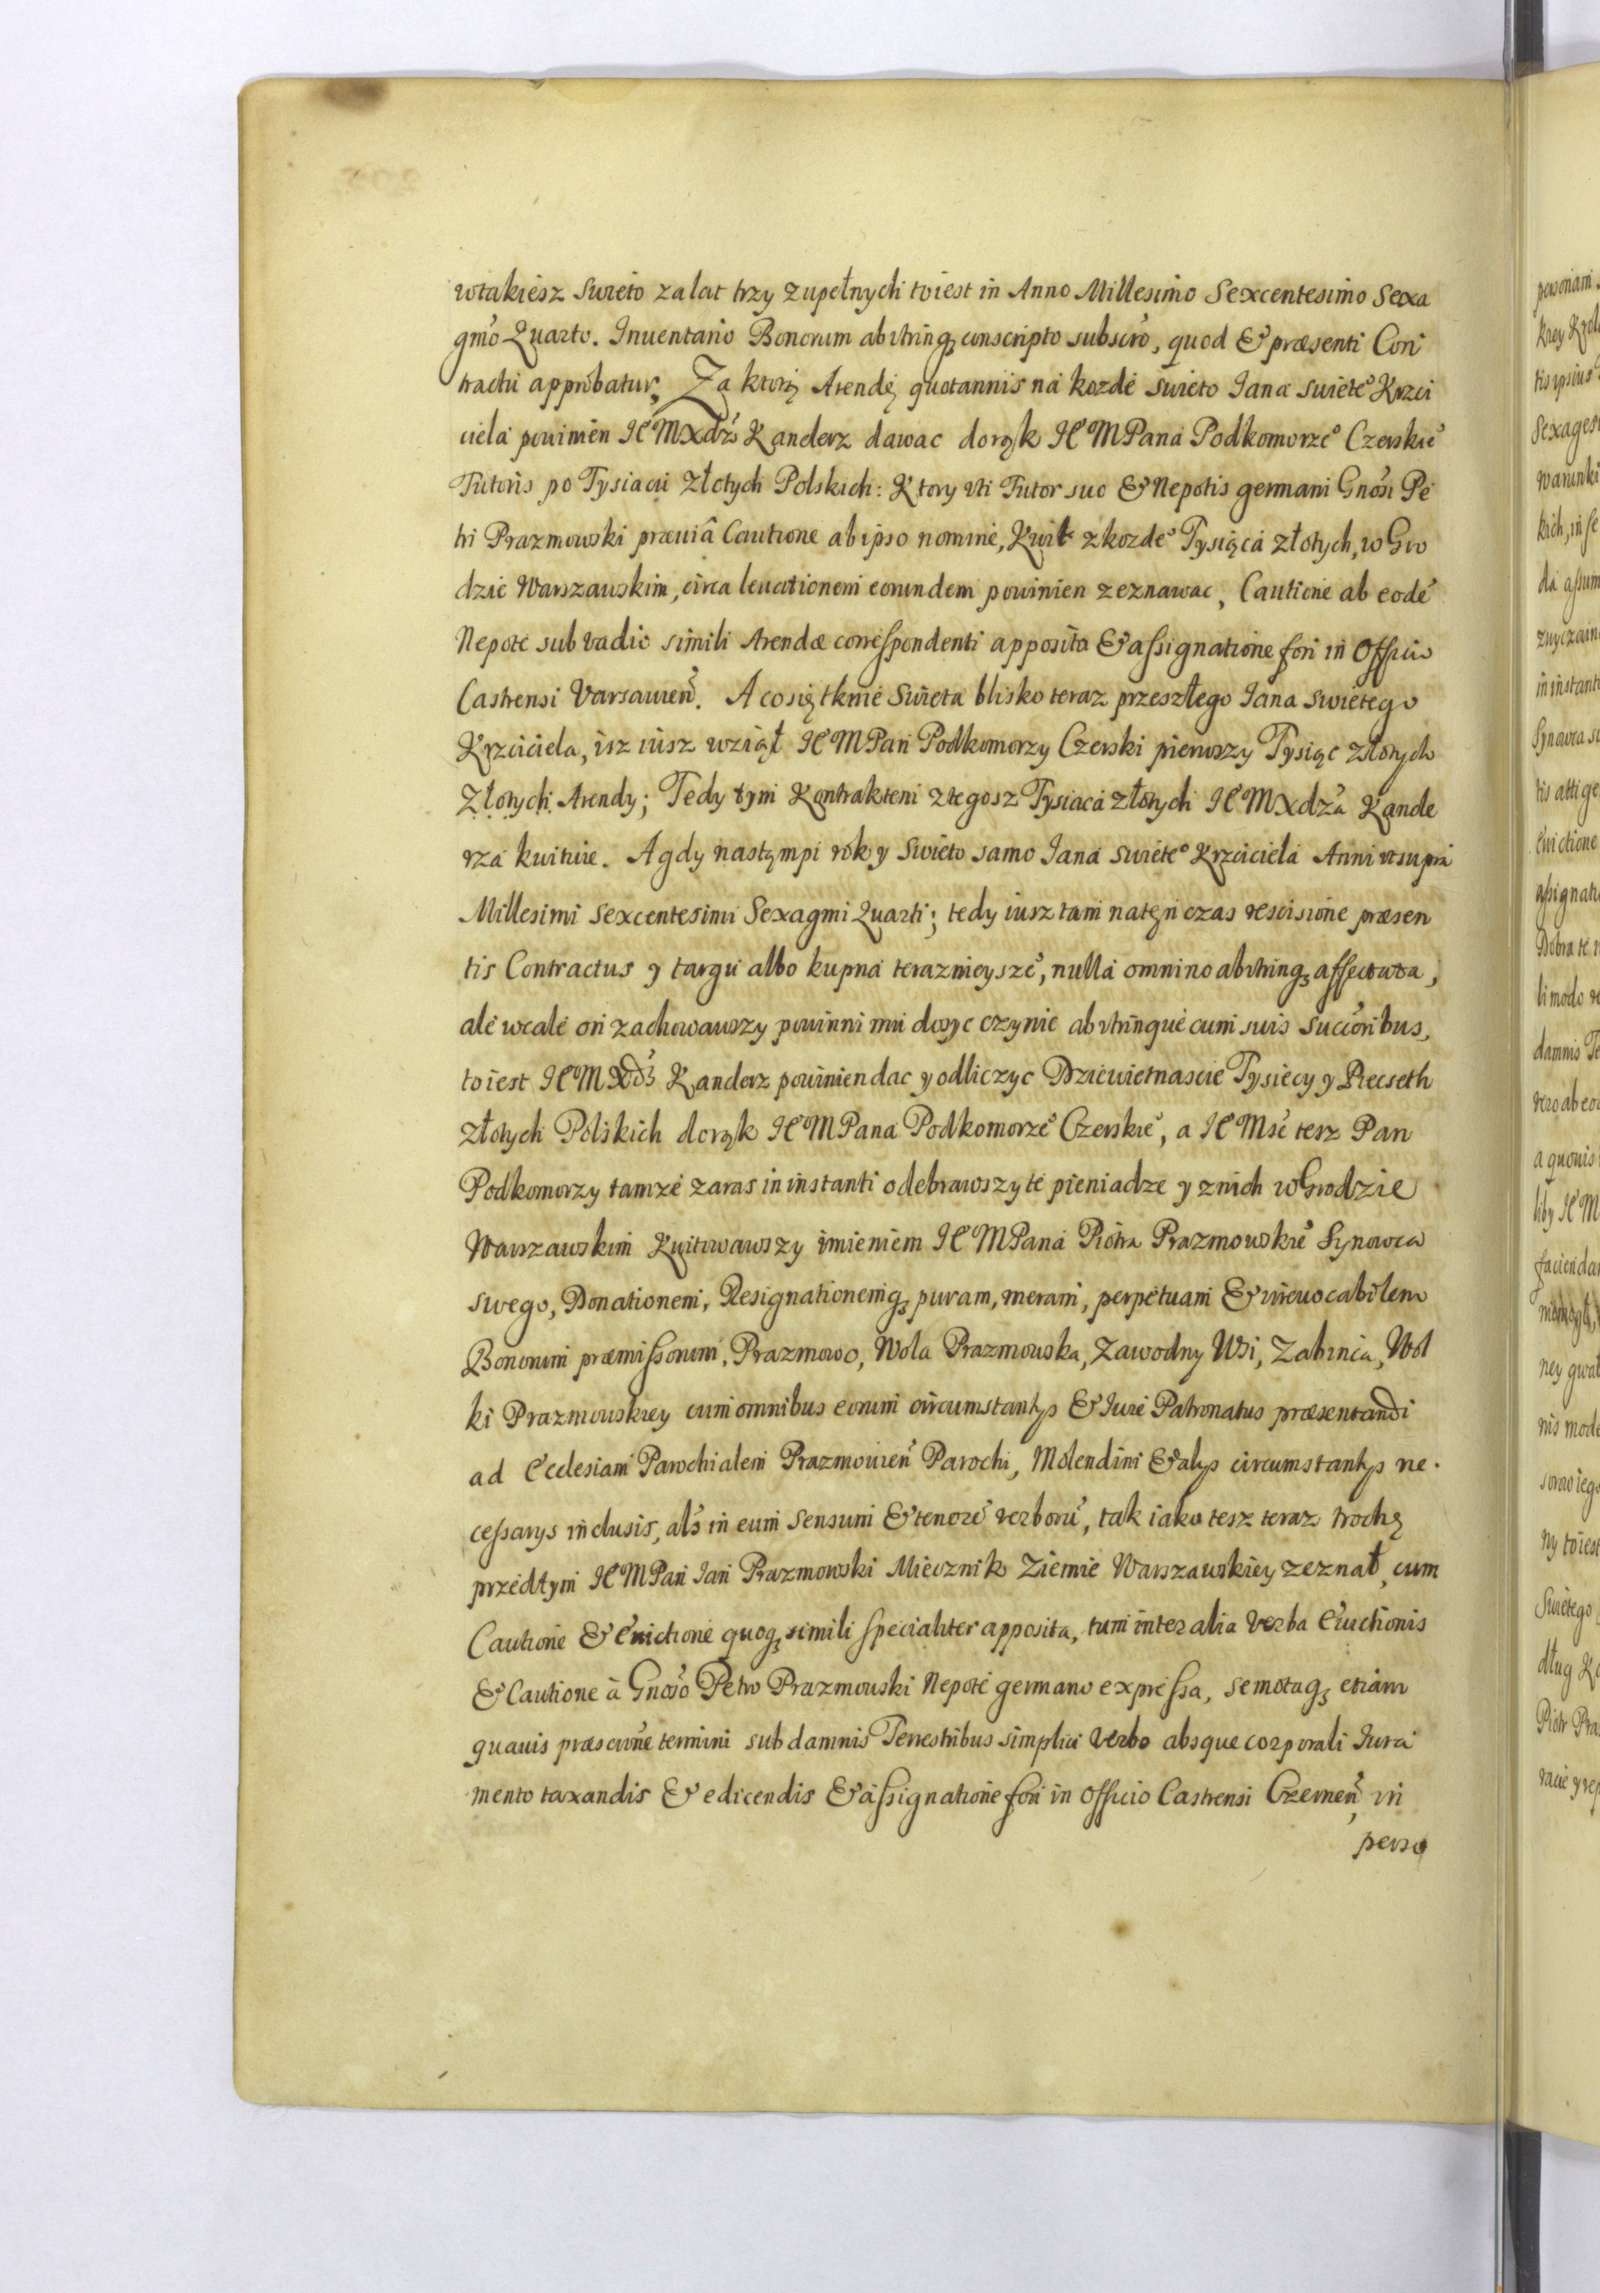 wtakiesz swieto za lat trzy zupełnych to iest in Anno Millesimo Sexcentesimo Sexa
gmo Quarto. Inuentario Bonorum ab vtrinq conscripto subscro, quod & præsenti Con
tractu approbatur, Za ktorą Arendę quotannis na kozde swieto Jana swiete° Krzci
ciela powinien JE° M Xdz Kanclerz dawac do rąk JE° M Pana Podkomorze° Czerskie°
Tutoris po Tysiacu Złotych Polskich: Ktory vti Tutor suo & Nepotis germani Gnosi Pe
tri Prazmowski præuiâ Cautione ab ipso nomine, Kwit z kozde° Tysiąca złotych, w Gro
dzie Warszawskim, circa leuationem eorundem powinien zeznawac, Cautione ab eodé
Nepote sub vadio simili Arendæ correspondenti apposita & assignatione fori in Officio
Castrensi Varsauień. A co się tknie Swieta blisko teraz przeszłego Jana Swietego
Krzciciela, isz iusz wziął JE° M Pan Podkomorzy Czerski pierwszy Tysiąc złotych
Złotych Arendy; Tedy tym Kontraktem z tegosz Tysiaca złotych JE° M Xdza Kancle
rza kwituie. A gdy nastąmpi rok y Swieto samo Jana Swiete° Krzciciela Anni vt supra
Millesimi Sexcentesimi Sexagmi Quarti; tedy iusz tam na tęn czas rescisione præsen
tis Contractus y targu albo kupna teraznieysze°, nulla omnino ab vtrinq affectata,
ale wcale on zachowawszy powinni mu dosyc czynic ab vtrinque cum suis Succoribus,
to iest JE° M Xdz Kanclerz powinien dac y odliczyc Dziewietnascie Tysiecy y Piecseth
złotych Polskich do rąk JE° M Pana Podkomorze° Czerskie°, a JE° Msć tesz Pan
Podkomorzy tamze zaras in instanti odebrawszy te pieniadze y znich w Grodzie
Warszawskim Kwitowawszy imieniem JE° M Pana Piotra Prazmowskie° Synowca
swego, Donationem, Resignationemq puram, meram, perpetuam & irreuocabilem
Bonorum præmissorum, Prazmowo, Wola Prazmowska, Zawodny Wsi, Zabinca, Wol
ki Prazmowskiey cum omnibus eorum circumstantys & Jure Patronatus præsentandi
ad Ecclesiam Parochialem Prazmowień Parochi, Molendini & alys circumstantys ne
cessarys inclusis, als in eum sensum & tenoré verború, tak iako tesz teraz trochę
przedtym JE° M Pan Jan Prazmowski Miecznik Ziemie Warszawskiey zeznał, cum
Cautione & Euictione quoq simili specialiter apposita, tum inter alia verba Euictionis
& Cautione à Gnoso Petro Prazmowski Nepote germano expressa, semotaq etiam
quauis præscrine termini sub damnis Terrestribus simplici verbo absque corporali Jura
mento taxandis & edicendis & assignatione fori in Officio Castrensi Czerneń, in
perso